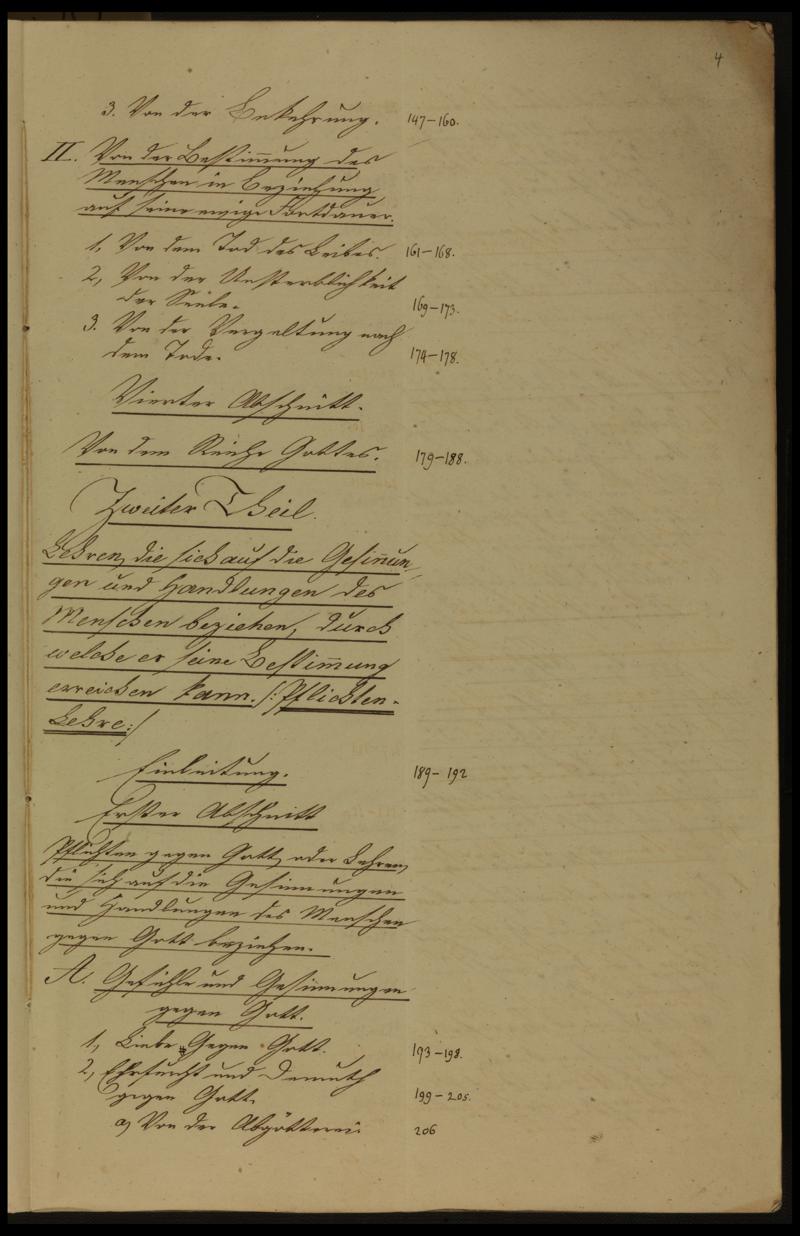 4
3. Von der Bekehrung. 147–160.
II. Von der Bestim̄ung des
Menschen in Beziehung
auf seine ewige Fortdauer.
1, Von dem Tod des Leibes. 161–168.
2, Von der Unsterblichkeit
der Seele. 169–173.
3. Von der Vergeltung nach
dem Tode. 174–178.
Vierter Abschnitt.
Von dem Reiche Gottes. 179–188.
Zweiter Theil.
Lehren, die sich auf die Gesin̄un-
gen und Handlungen des
Menschen beziehen, durch
welche er seine Bestim̄ung
erreichen kann. /: Pflichten-
Lehre :/
Einleitung. 189–192
Erster Abschnitt
Pflichten gegen Gott, oder Lehren,
die sich auf die Gesinnungen
und Handlungen des Menschen
gegen Gott beziehen.
A. Gefühle und Gesinnungen
gegen Gott.
1, Liebe Gegen Gott. 193–198.
2, Ehrfurcht und Demuth
gegen Gott. 199–205.
a) Von der Abgötterei. 206